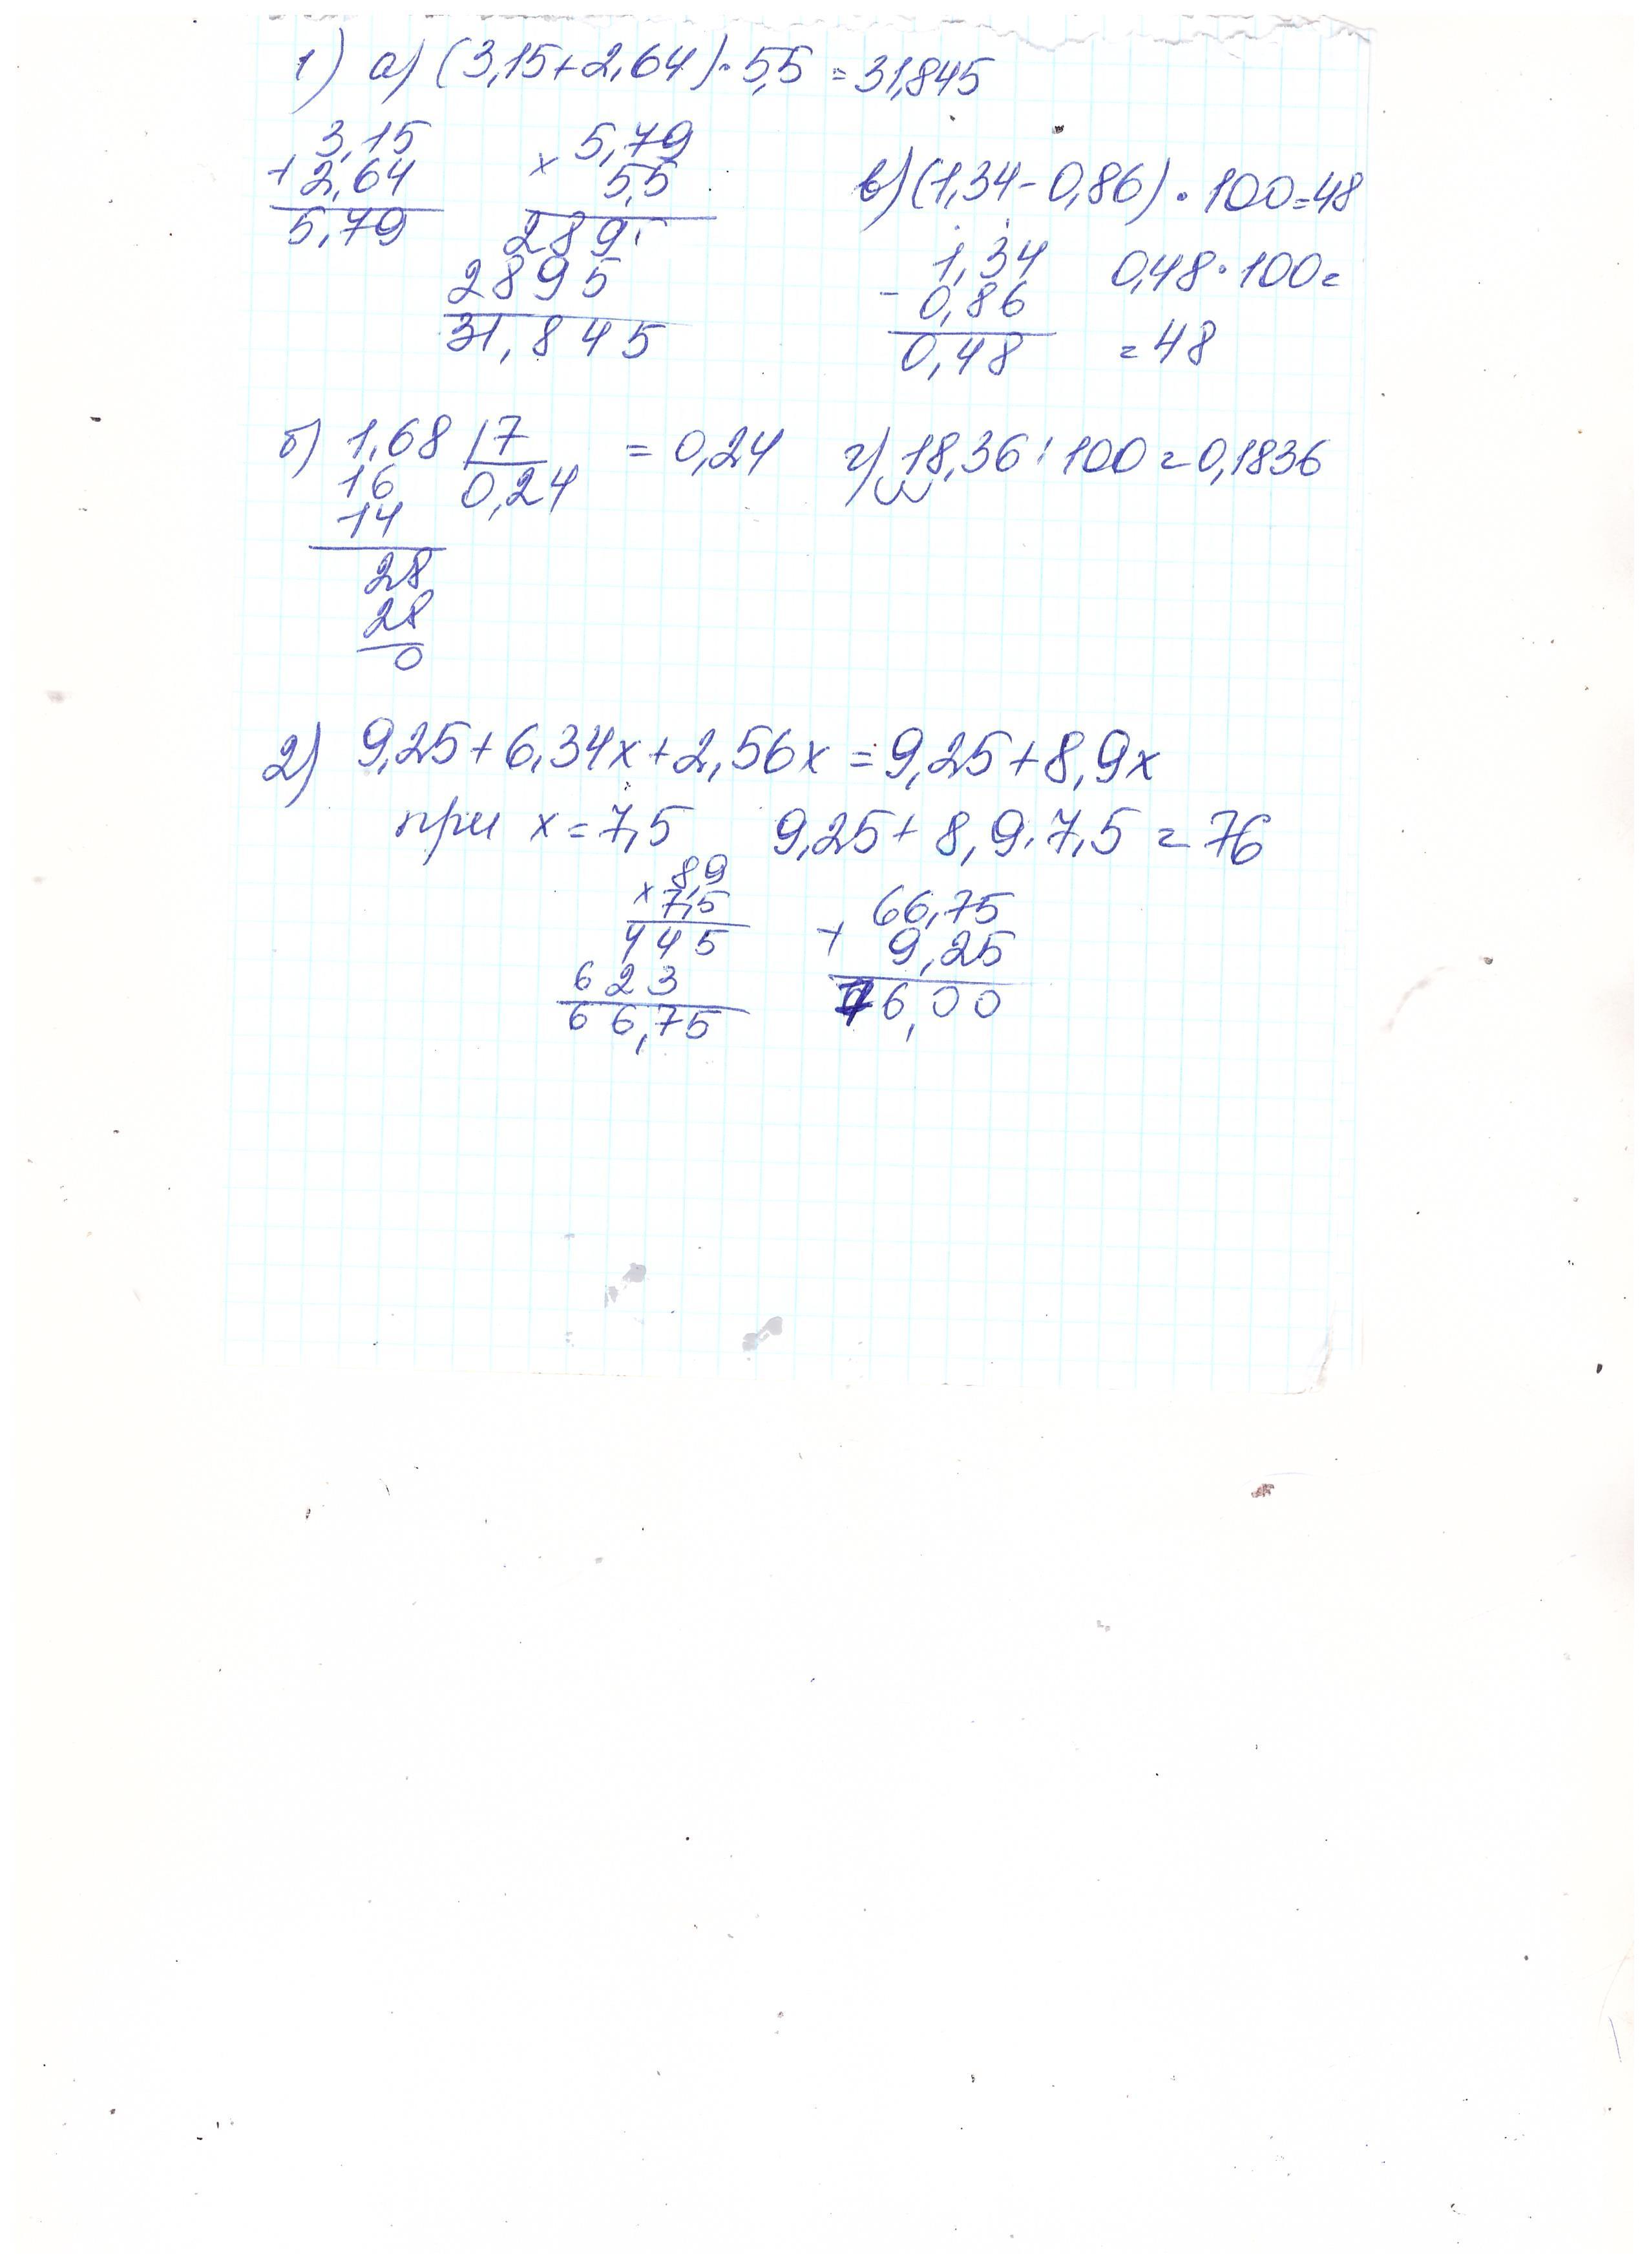 1) а) (3,15+2,64)·5,5 = 31,845
3,15
+ 2,64
5,79
5,79
× 5,5
2895
2895
31,845
в) (1,34-0,86)·100=48
1,34
- 0,86
0,48
0,48·100=
=48
б) 1,68 | 7 = 0,24
16 0,24
14
28
28
0
г) 18,36:100=0,1836
2) 9,25+6,34x+2,56x=9,25+8,9x
при x=7,5 9,25+8,9·7,5=76
8,9
× 7,5
445
623
66,75
66,75
+ 9,25
76,00